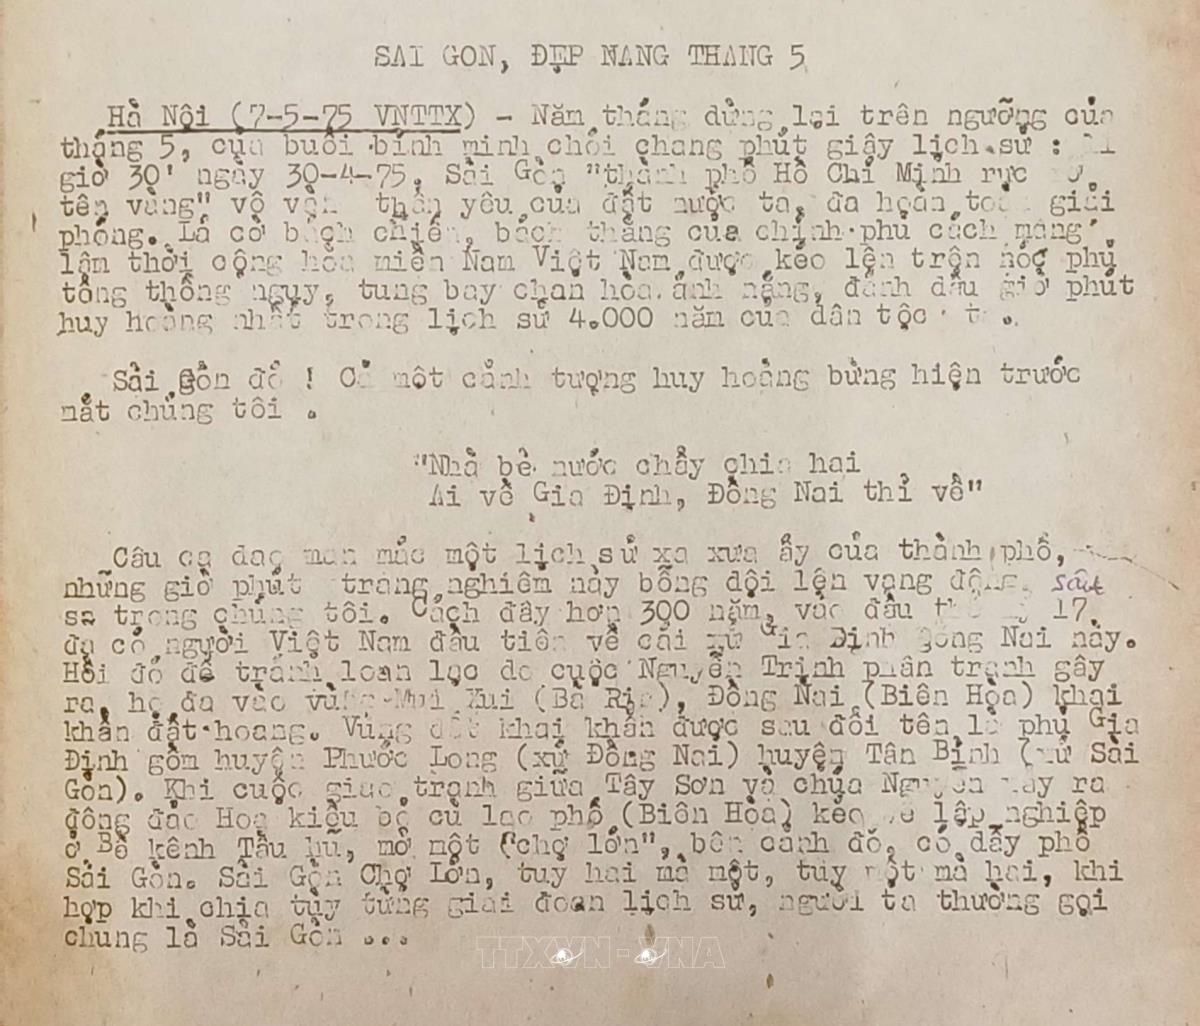 SAI GON, ĐẸP NANG THANG 5
Hà Nội (7-5-75 VNTTX) - Năm tháng dừng lại trên ngưỡng của
tháng 5, của buổi bình minh chói chang phút giây lịch sử :
giờ 30' ngày 30-4-75, Sài Gòn "thành phố Hồ Chí Minh rực
tên vàng" vô vàn thân yêu của đất nước ta, đa hoàn toàn giải
phóng. Lá cờ bách chiến, bách thắng của chính phủ cách mạng
lâm thời cộng hòa miền Nam Việt Nam được kéo lên trên nóc phủ
tổng thống ngụy, tung bay chan hòa ánh nắng, đánh dấu giờ phút
huy hoàng nhất trong lịch sử 4.000 năm của dân tộc
Sài Gòn đó ! Cả một cảnh tượng huy hoàng bừng hiện trước
mắt chúng tôi .
"Nhà bè nước chảy chia hai
Ai về Gia Định, Đồng Nai thì về"
Câu ca dao man mác một lịch sử xa xưa ấy của thành phố,
những giờ phút trang nghiêm này bỗng dội lên vang động, sâu
sa trong chúng tôi. Cách đây hơn 300 năm, vào đầu 17,
đa có người Việt Nam đầu tiên về cái xứ Gia Định Đồng Nai này.
Hồi đó để tránh loạn lạc do cuộc Nguyễn Trịnh phân tranh gây
ra, họ đa vào vùng Mui Xui (Bà Rịa), Đồng Nai (Biên Hòa) khai
khẩn đất hoang. Vùng đất khai khẩn được sau đổi tên là phủ Gia
Định gồm huyện Phước Long (xứ Đồng Nai) huyện Tân Bình (xứ Sài
Gòn). Khi cuộc giao tranh giữa Tây Sơn và chúa Nguyễn xảy ra
đông đảo Hoa kiều bỏ cù lao phố (Biên Hòa) kéo về lập nghiệp
ở Bề kênh Tầu hũ, mở một "chợ lớn", bên cạnh đó, có dãy phố
Sài Gòn. Sài Gòn Chợ Lớn, tuy hai mà một, tuy một mà hai, khi
hợp khi chia tùy từng giai đoạn lịch sử, người ta thường gọi
chung là Sài Gòn ...
TTXVN-VNA